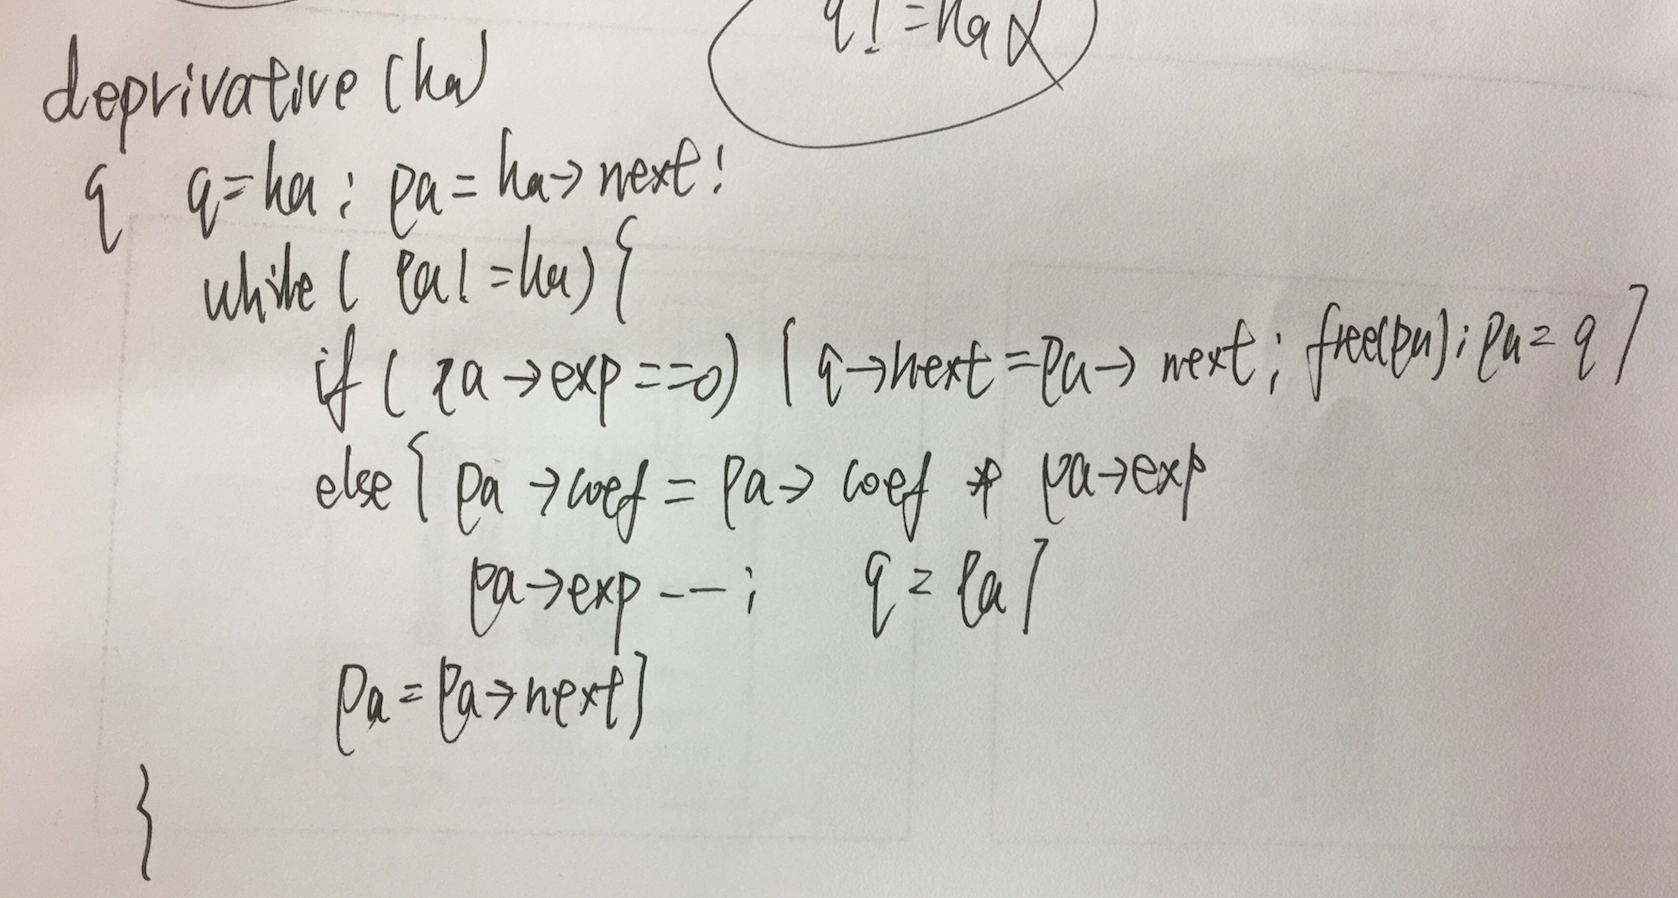 q!=ha
deprivative (ha)
{ q=ha; pa=ha→next;
while( pa!=ha){
if( pa→exp==0) {q→next=pa→next; free(pa); pa=q}
else{ pa→coef=pa→coef * pa→exp
pa→exp--; q=pa}
pa=pa→next}
}